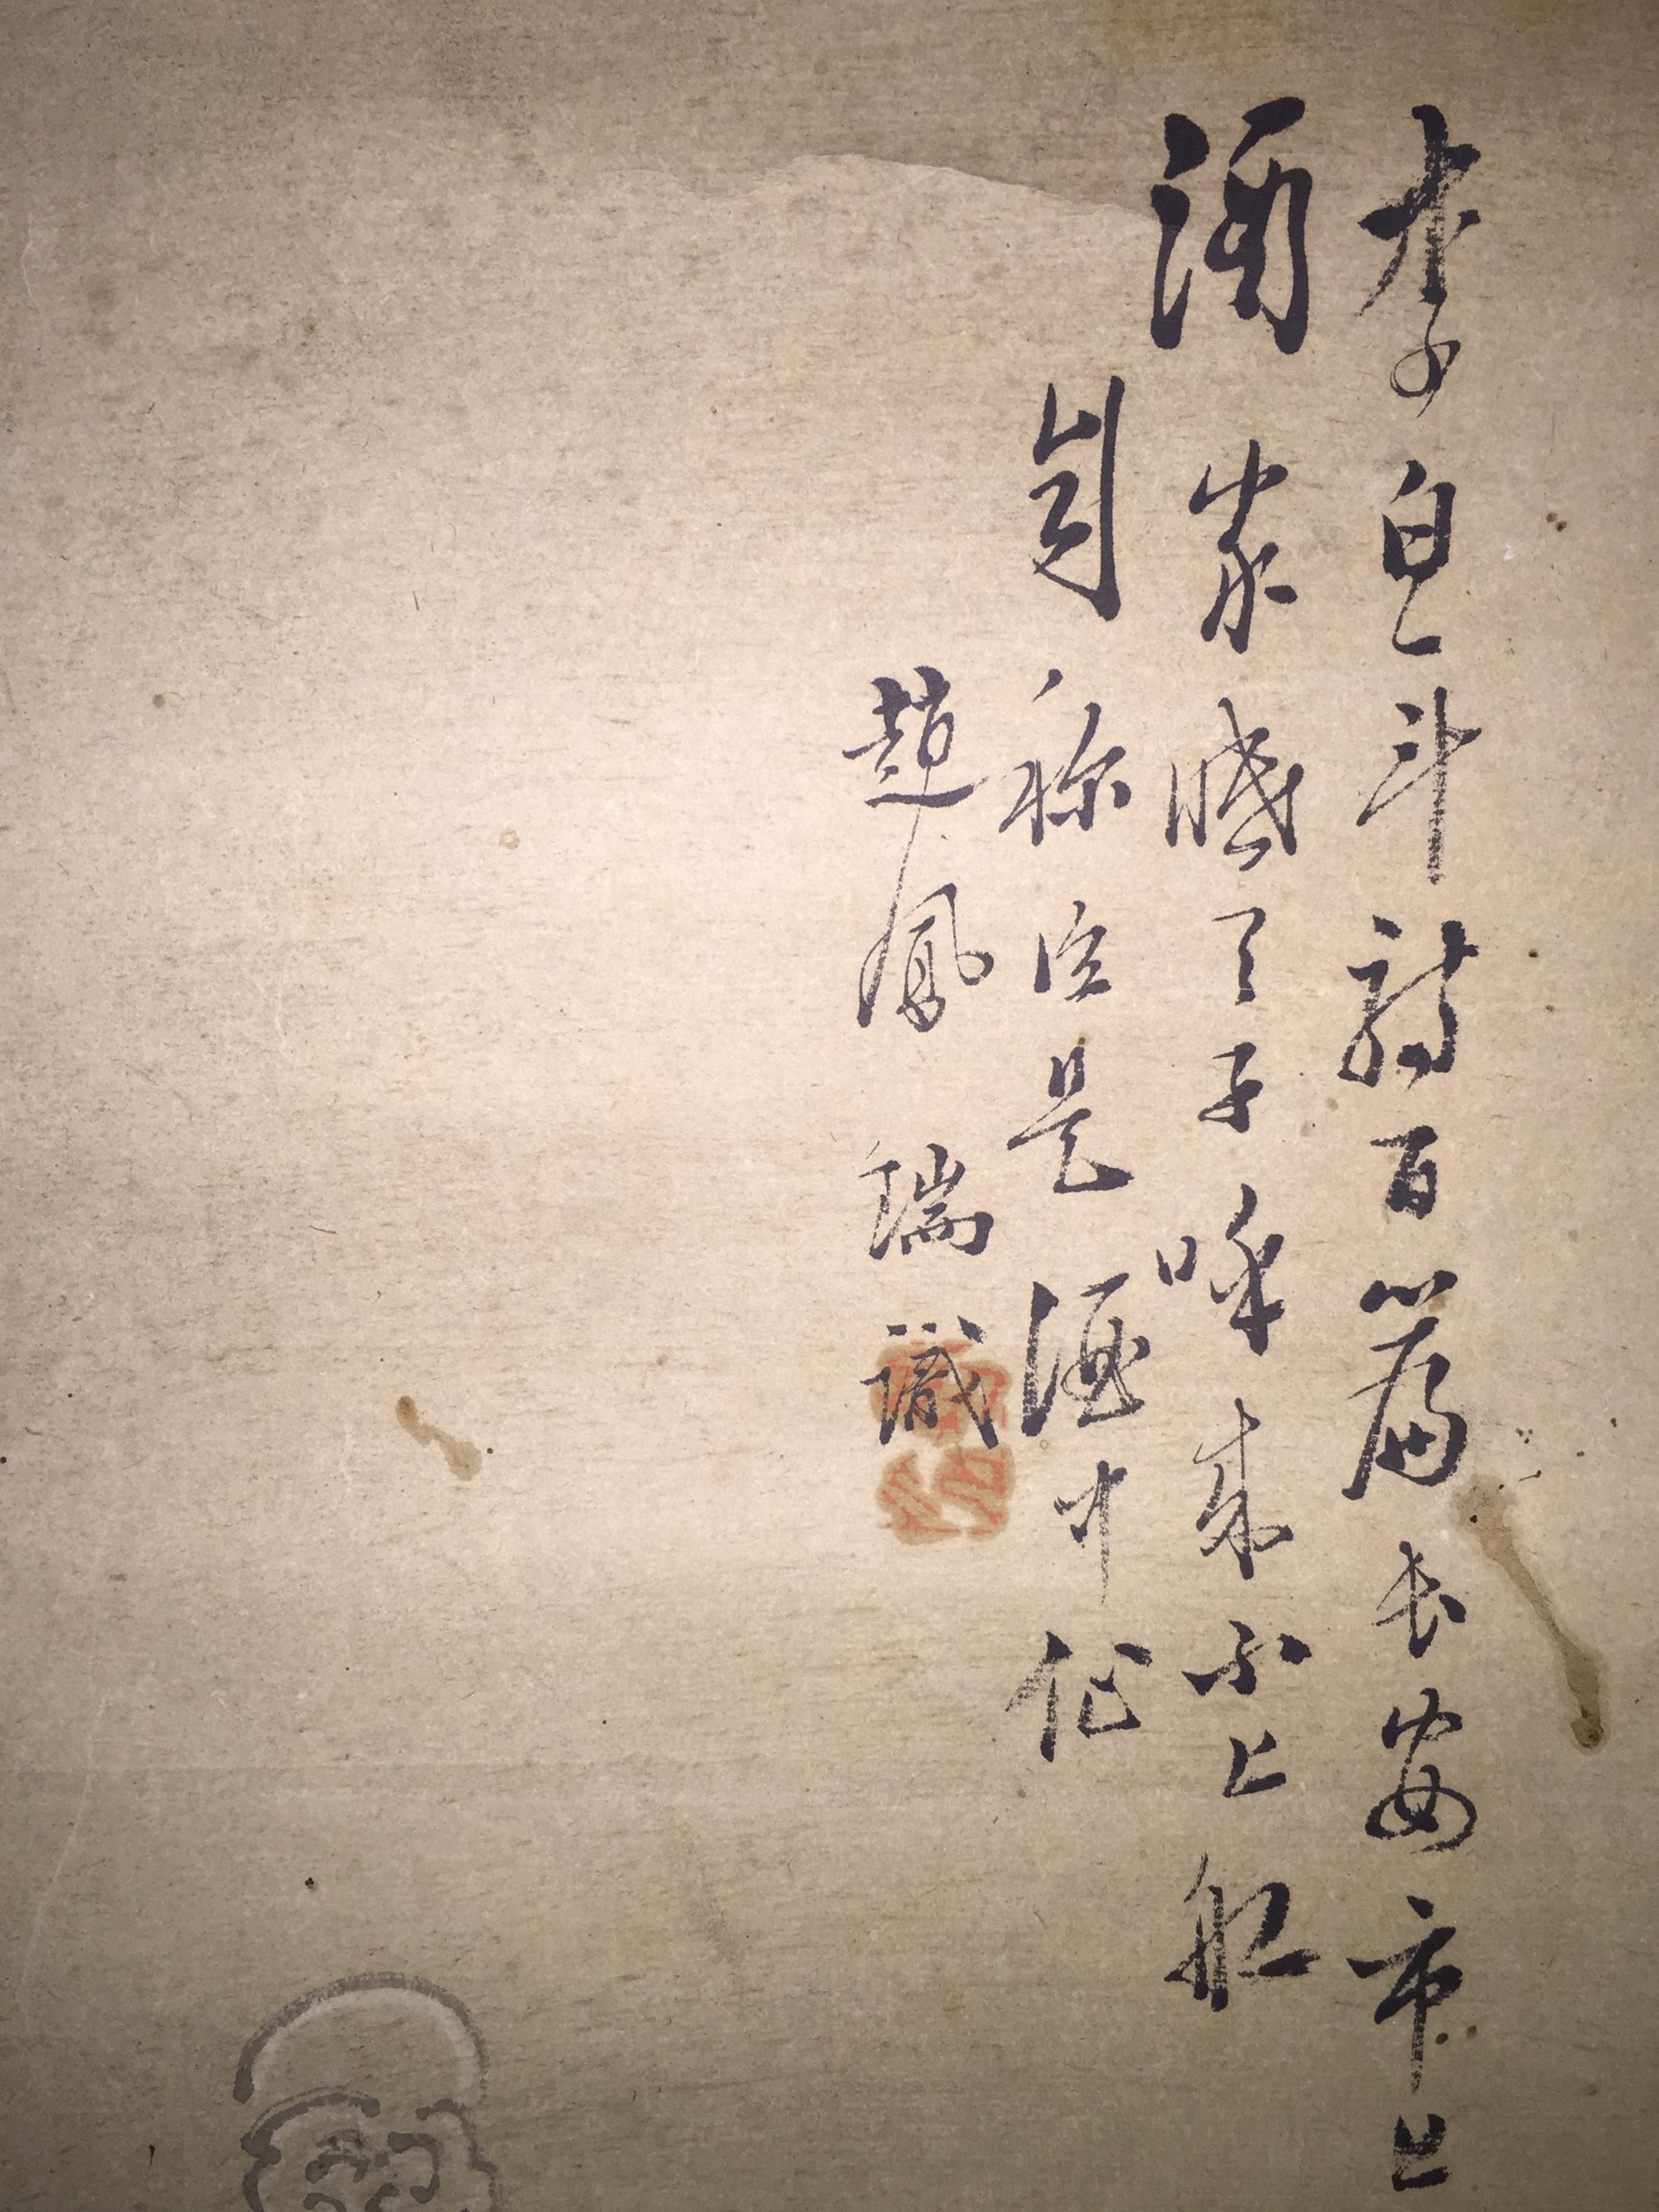 李白一斗詩百篇長安市上
酒家眠天子呼來不上船
自称臣是酒中仙
趙鳳瑞識